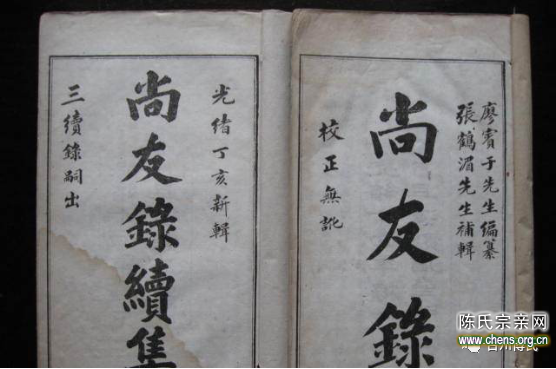 廖賓于先生編纂
張鶴湄先生補輯
尚友錄
校正無訛
光緒丁亥新輯
尚友錄續集
三續錄嗣出
陈氏宗亲网
www.chens.org.cn